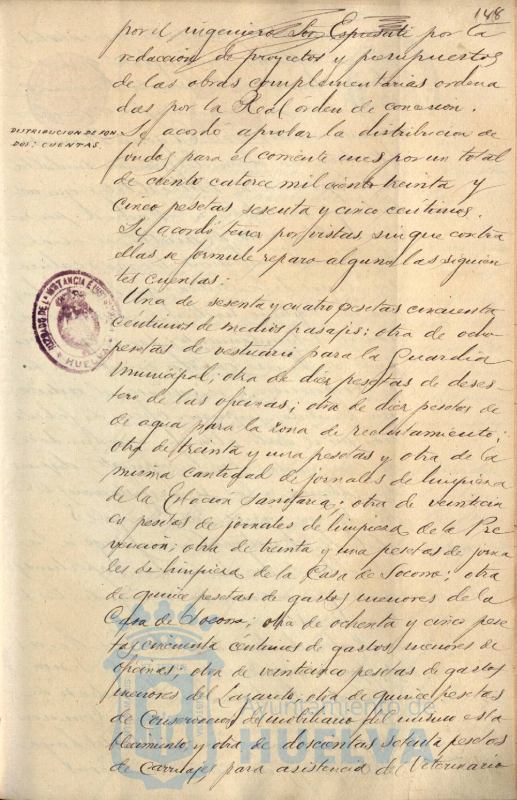 148
por el ingeniero Sor Espresati por la
redacción de proyectos y presupuestos
de las obras complementarias ordena
das por la Real orden de concesion.
DISTRIBUCION DE FON
DOS: CUENTAS.
Se acordó aprobar la distribucion de
fondos para el corriente mes por un total
de ciento catorce mil ciento treinta y
cinco pesetas sesenta y cinco centimos.
Se acordó tener por vistas, sin que contra
ellas se formule reparo alguno las siguien
tes cuentas:
Una de sesenta y cuatro pesetas cincuenta
centimos de medios pasajes; otra de ocho
pesetas de vestuario para la Guardia
Municipal; otra de diez pesetas de deses
tero de las oficinas; otra de diez pesetas de
de agua para la zona de reclutamiento;
otra de treinta y una pesetas y otra de la
misma cantidad de jornales de limpieza
de la Estación Sanitaria; otra de veintecin
co pesetas de jornales de limpieza de la Pre
vención; otra de treinta y una pesetas de jorna
les de limpieza de la Casa de Socorro; otra
de quince pesetas de gastos menores de la
Casa de Socorro; otra de ochenta y cinco pese
tas cincuenta céntimos de gastos menores de
oficinas; otra de veinticinco pesetas de gastos
menores del Lazareto, otra de quince pesetas
de conservacion del mobiliario del mismo esta
blecimiento y otra de doscientas setenta pesetas
de carruajes para asistencia del Veterinario
JUZGADO DE 1ª INSTANCIA E
HUELVA
Ayuntamiento de
HUELVA